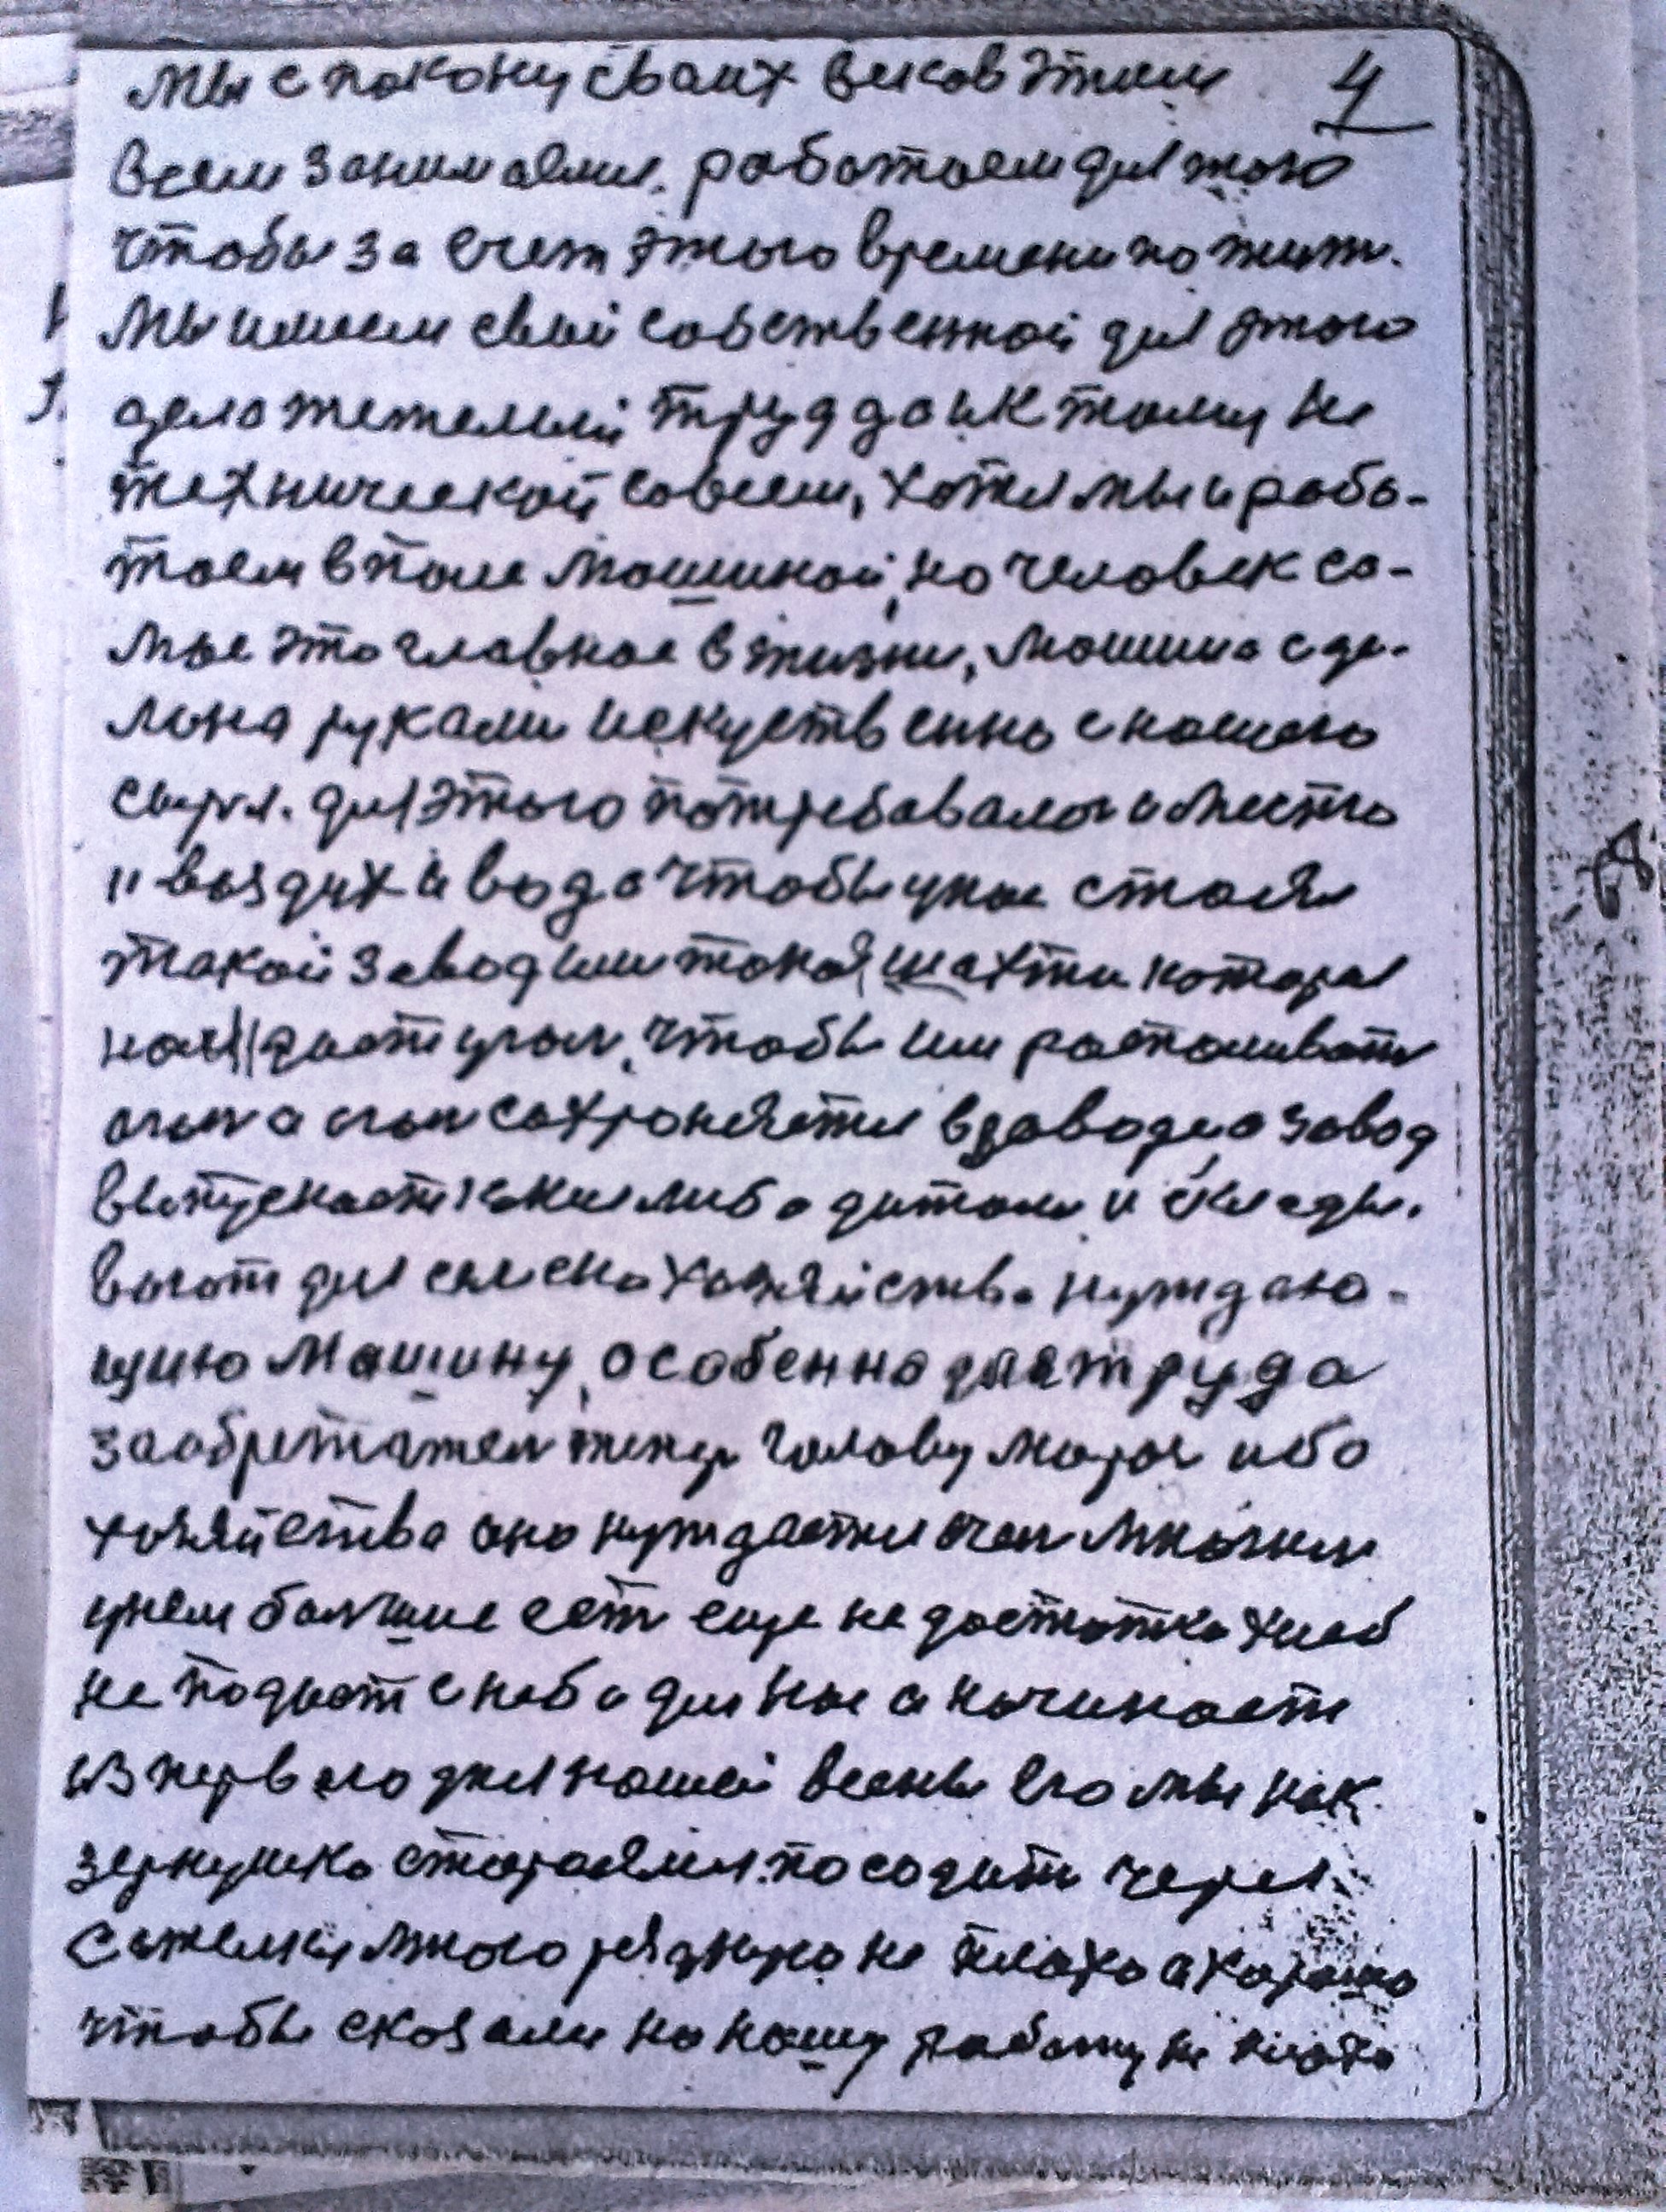 мы с покону сваих веков этим 4
всем занимаемся. работаем для того
чтобы за счет этого времени пожить.
Мы имеем свой собственной для этого
дела тежелый труд да и к тому не
технической совсем, хотя мы и рабо-
таем в поле машиной, но человек са-
мые это главное в жизни, машина сде-
лона руками искуственно с нашего
сырья. для этого потребовалось и место
и воздух и вода чтобы у нас стоял
такой завод или такая шахта которая
нам дает уголь, чтобы им растапливать
огонь а огонь сохроняется в заводе, а завод
выпускает какие либо дитали и склады-
вают для селско хозяйства нуждаю-
щию машину, особенно для труда
голову ибо
хозяйства оно нуждается очень многим
у нем больше есть еще не достатка хлеб
не подает с неба для нас а начинает
из первого дня нашей весны его мы как
зернушко стараемся посадить через
сажелки много рядную не плохо а хорошо
чтобы сказали на нашу работу не плохо
8